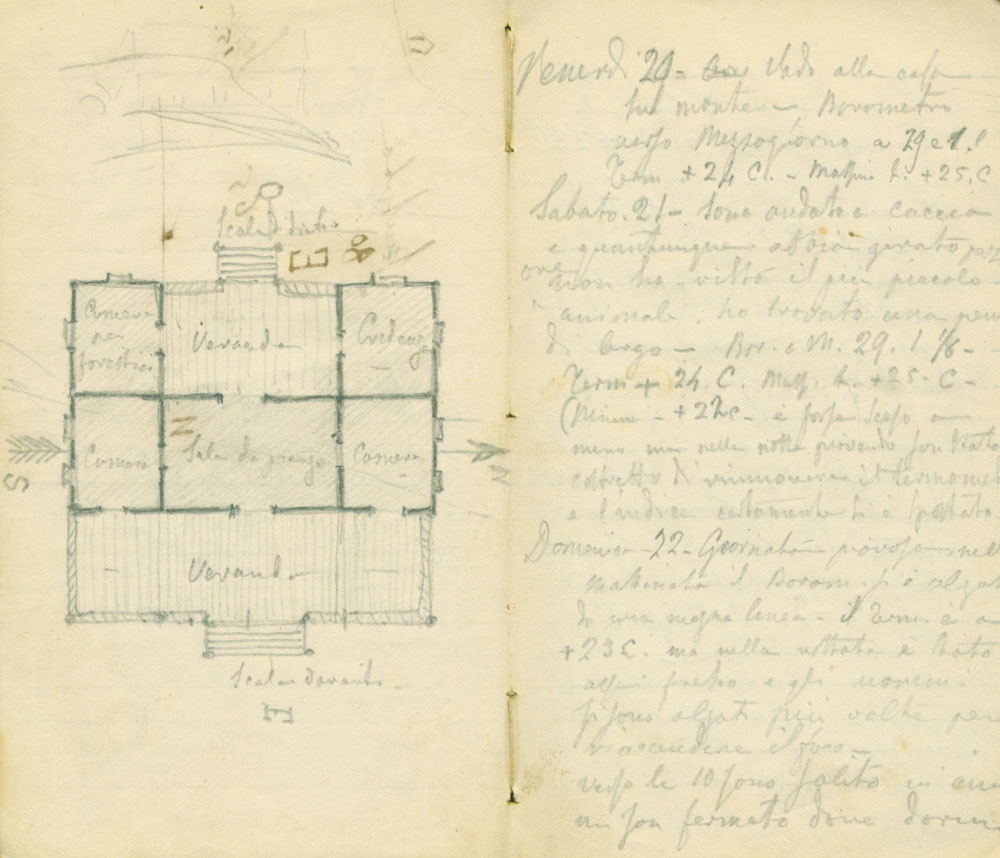 Scala di dietro
E
Camera
per
forestieri
Veranda
Credenza
Camera
Sala da pranzo
Camera
S
N
Veranda
Scala davanti
E
Venerdi 20 - Vado alla casa
sul monte - Barometro
verso Mezzogiorno a 29 e 1.
Term +24 C. - Massimo t. +25. C
Sabato. 21 - Sono andato a caccia
e quantunque abbia girato per
ore non ho visto il più piccolo
animale: ho trovato una penna
di Argo - Bar. a M. 29. 1. 1/8 -
Term + 24. C. Mass. t. +25. C -
(Minimo - +22c - e forse sceso a
meno ma nella notte piovendo son stato
costretto di rimuovere il termomet
e l'indice certamente si è spostato
Domenica - 22 - Giornata piovosa nella
mattinata il Barom. si è alzato
di una mezza linea - il Term. è a
+23 C. ma nella nottata è stato
assai fresco e gli uomini
si sono alzati più volte per
riaccendere il foco -
verso le 10 sono salito in
mi son fermato dove